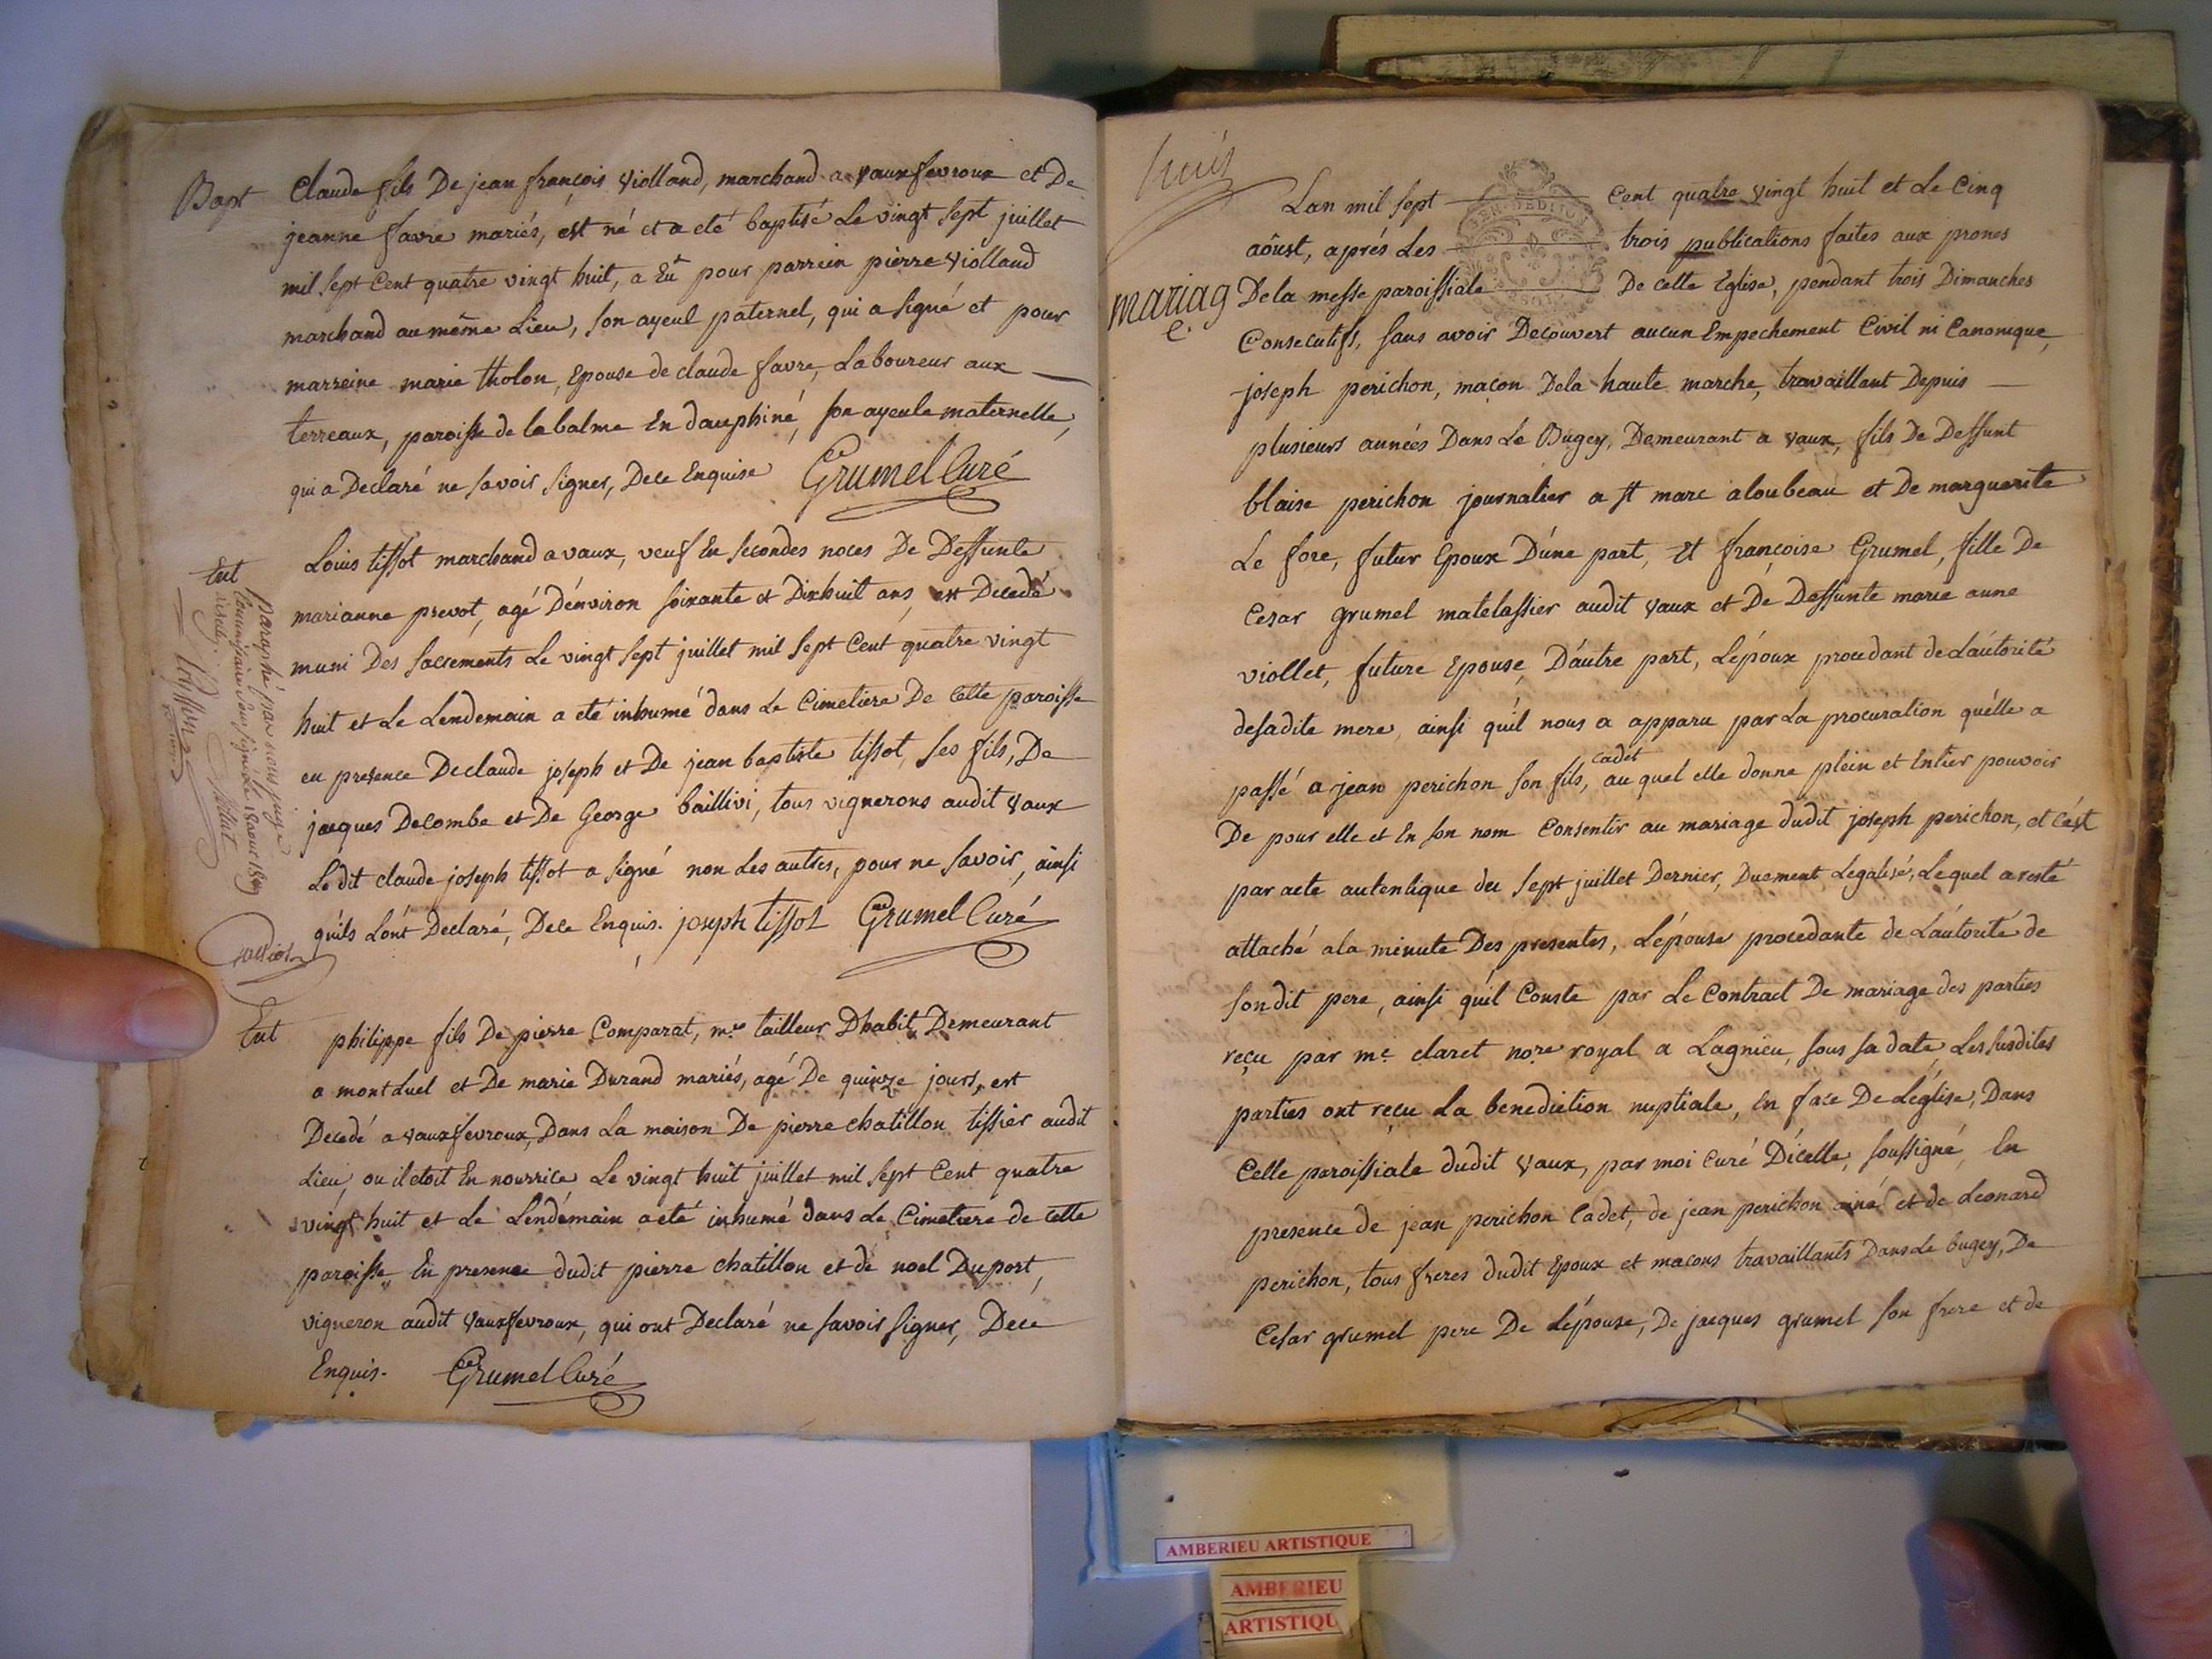 Bapt
Claude fils De jean françois Violland, marchand a vauxfevroux et De
jeanne favre mariés, est né et a eté baptisé Le vingt sept juillet
mil sept Cent quatre vingt huit, a Eû pour parrein pierre Violland
marchand au même Lieu, son ayeul paternel, qui a signé et pour
marreine marie tholon, Epouse de claude favre, Laboureur aux
terreaux, paroisse de la balme En dauphiné, son ayeule maternelle,
qui a Declaré ne savoir signer, De ce Enquise Grumel Curé
Ent
Louis tissot marchand a vaux, veuf En secondes noces De Deffunte
marianne prevot, agé D'environ soixante et Dixhuit ans, est Decedé
muni Des sacrements Le vingt sept juillet mil sept Cent quatre vingt
huit et Le Lendemain a eté inhumé dans Le Cimetiere De cette paroisse
en presence De claude joseph et De jean baptiste tissot, ses fils, De
jacques Decombe et De George baillivi, tous vignerons audit vaux
Le dit claude joseph tissot a signé non Les autres, pour ne savoir, ainsi
qu'ils L'ont Declaré, De ce Enquis. joseph tissot Grumel Curé
paraphé par nous juge
Commissaire soussigné le
Ent
philippe fils De pierre Comparat, me tailleur D'habit, Demeurant
a montLuel et De marie Durand mariés, agé De quinze jours, est
Decedé a vauxfevroux, Dans La maison De pierre chatillon tissier audit
Lieu, ou il etoit En nourrice Le vingt huit juillet mil sept Cent quatre
vingt huit et Le Lendemain a eté inhumé dans Le Cimetiere de cette
paroisse, En presence dudit pierre chatillon et de noel Duport,
vigneron audit vauxfevroux, qui ont Declaré ne savoir signer, De ce
Enquis. Grumel Curé
huis
Lan mil sept Cent quatre vingt huit et Le Cinq
aôust, aprés Les trois publications faites aux prones
mariage
De la messe paroissiale De cette Eglise, pendant trois Dimanches
Consecutifs, sans avoir Decouvert aucun Empechement Civil ni Canonique,
joseph perichon, maçon De la haute marche, travaillant Depuis
plusieurs années Dans Le Bugey, Demeurant a vaux, fils De Deffunt
blaise perichon journalier a st marc a loubeau et De marguerite
Le fore, futur Epoux D'une part, Et françoise Grumel, fille De
Cesar grumel matelassier audit vaux et De Deffunte marie anne
viollet, future Epouse, D'autre part, L'époux procedant de L'autorité
de sadite mere, ainsi qu'il nous a apparu par La procuration qu'elle a
passé a jean perichon son fils, cadet au quel elle donne plein et Entier pouvoir
De pour elle et En son nom Consentir au mariage dudit joseph perichon, et c'est
par acte autentique du sept juillet Dernier, Duement Legalisé, Lequel a resté
attaché a la minute Des presentes, L'épouse procedante de L'autorité de
son dit pere, ainsi qu'il Conste par Le Contract De mariage des parties
reçu par me claret nore royal a Lagnieu, sous sa date, Les susdites
parties ont reçu La benediction nuptiale, En face De L'église, Dans
Celle paroissiale dudit vaux, par moi Curé D'icelle, soussigné, En
presence de jean perichon Cadet, de jean perichon ainé et de Leonard
perichon, tous freres dudit Epoux et macons travaillants Dans Le bugey, De
Cesar grumel pere De L'épouse, De jacques grumel son frere et de
AMBERIEU ARTISTIQUE
AMBERIEU
ARTISTIQU